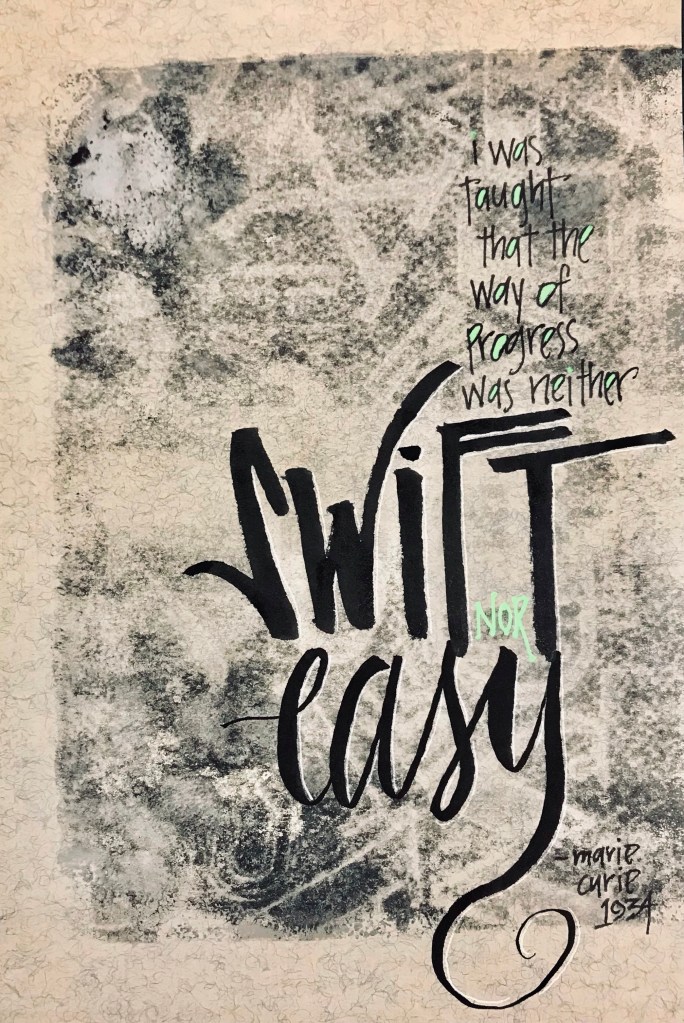 i was
taught
that the
way of
progress
was neither
SWiFT
NOR
easy
- marie
curie
1934